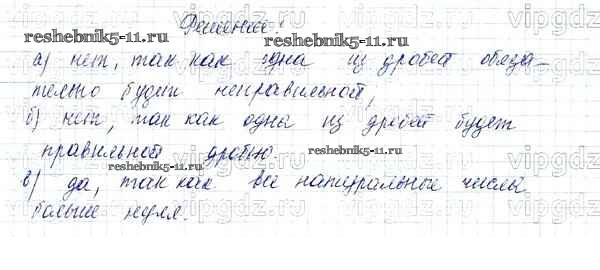 Решение:
vipgdz.ru
reshebnik5-11.ru
а) нет, так как одна из дробей обяза-
тельно будет неправильной,
reshebnik5-11.ru
б) нет, так как одна из дробей будет
правильной дробью.
reshebnik5-11.ru
reshebnik5-11.ru
в) да, так как все натуральные числа
больше нуля.